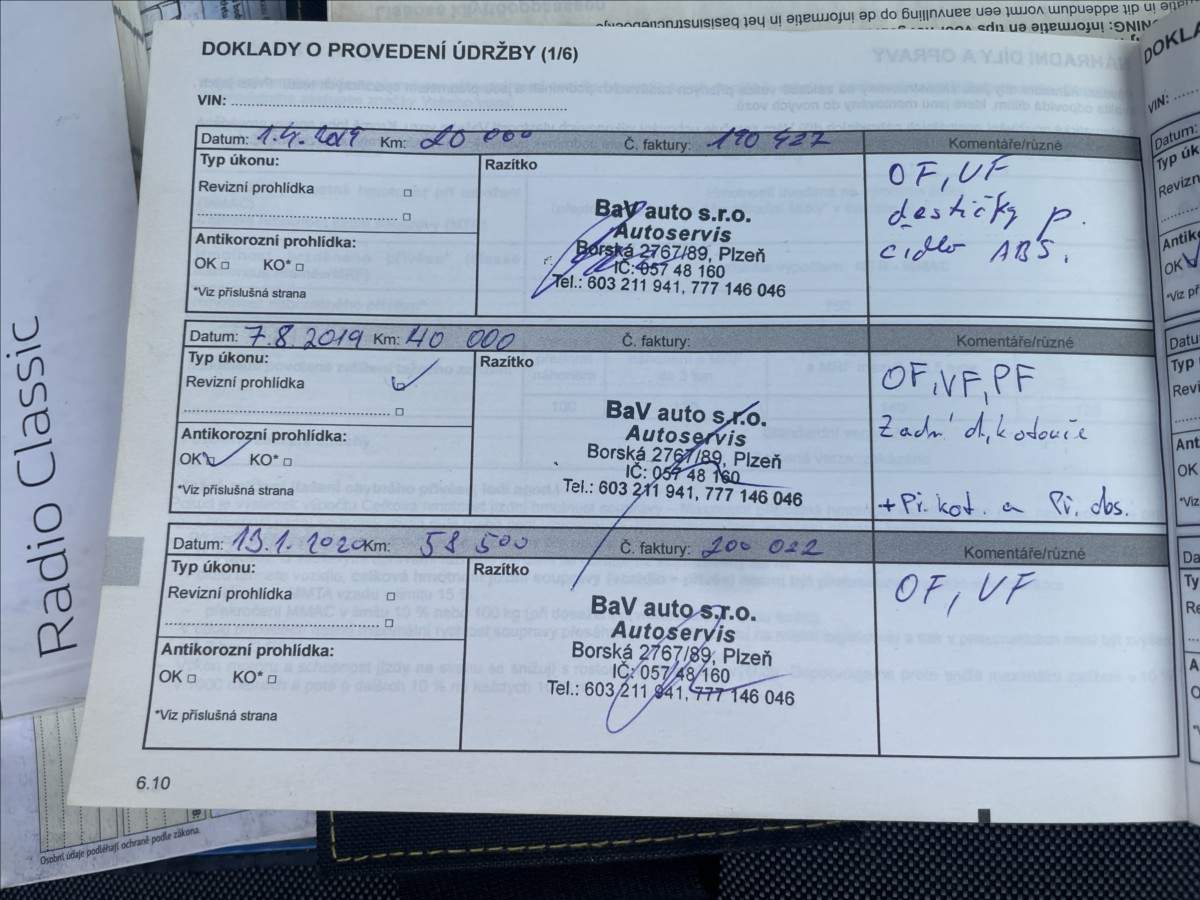 DOKLADY O PROVEDENÍ ÚDRŽBY (1/6)
VIN:
Datum: 1.4.2019 Km: 20 000 Č. faktury: 190 427 Komentáře/různé
Typ úkonu:
Revizní prohlídka
Antikorozní prohlídka:
OK KO*
*Viz příslušná strana
Razítko
BaV auto s.r.o.
Autoservis
Borská 2767/89, Plzeň
IČ: 057 48 160
Tel.: 603 211 941, 777 146 046
OF, VF
destičky p.
cidlo ABS.
Datum: 7.8.2019 Km: 40 000 Č. faktury: Komentáře/různé
Typ úkonu:
Revizní prohlídka
Antikorozní prohlídka:
OK KO*
*Viz příslušná strana
Razítko
BaV auto s.r.o.
Autoservis
Borská 2767/89, Plzeň
IČ: 057 48 160
Tel.: 603 211 941, 777 146 046
OF, VF, PF
Zadní d, kotouče
+ Př. kot. a Př. obs.
Datum: 13.1.2020 Km: 58 500 Č. faktury: 200 022 Komentáře/různé
Typ úkonu:
Revizní prohlídka
Antikorozní prohlídka:
OK KO*
*Viz příslušná strana
Razítko
BaV auto s.r.o.
Autoservis
Borská 2767/89, Plzeň
IČ: 057 48 160
Tel.: 603 211 941, 777 146 046
OF, VF
6.10
Radio Classic
Osobní údaje podléhají ochraně podle zákona.
VIN:
Datum: